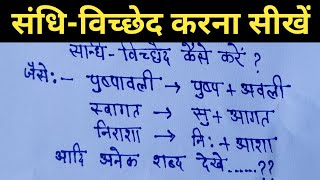 संधि-विच्छेद करना सीखें
सन्धि-विच्छेद कैसे करें ?
जैसे:- पुष्पावली → पुष्प + अवली
स्वागत → सु + आगत
निराशा → नि: + आशा
आदि अनेक शब्द देखें......??